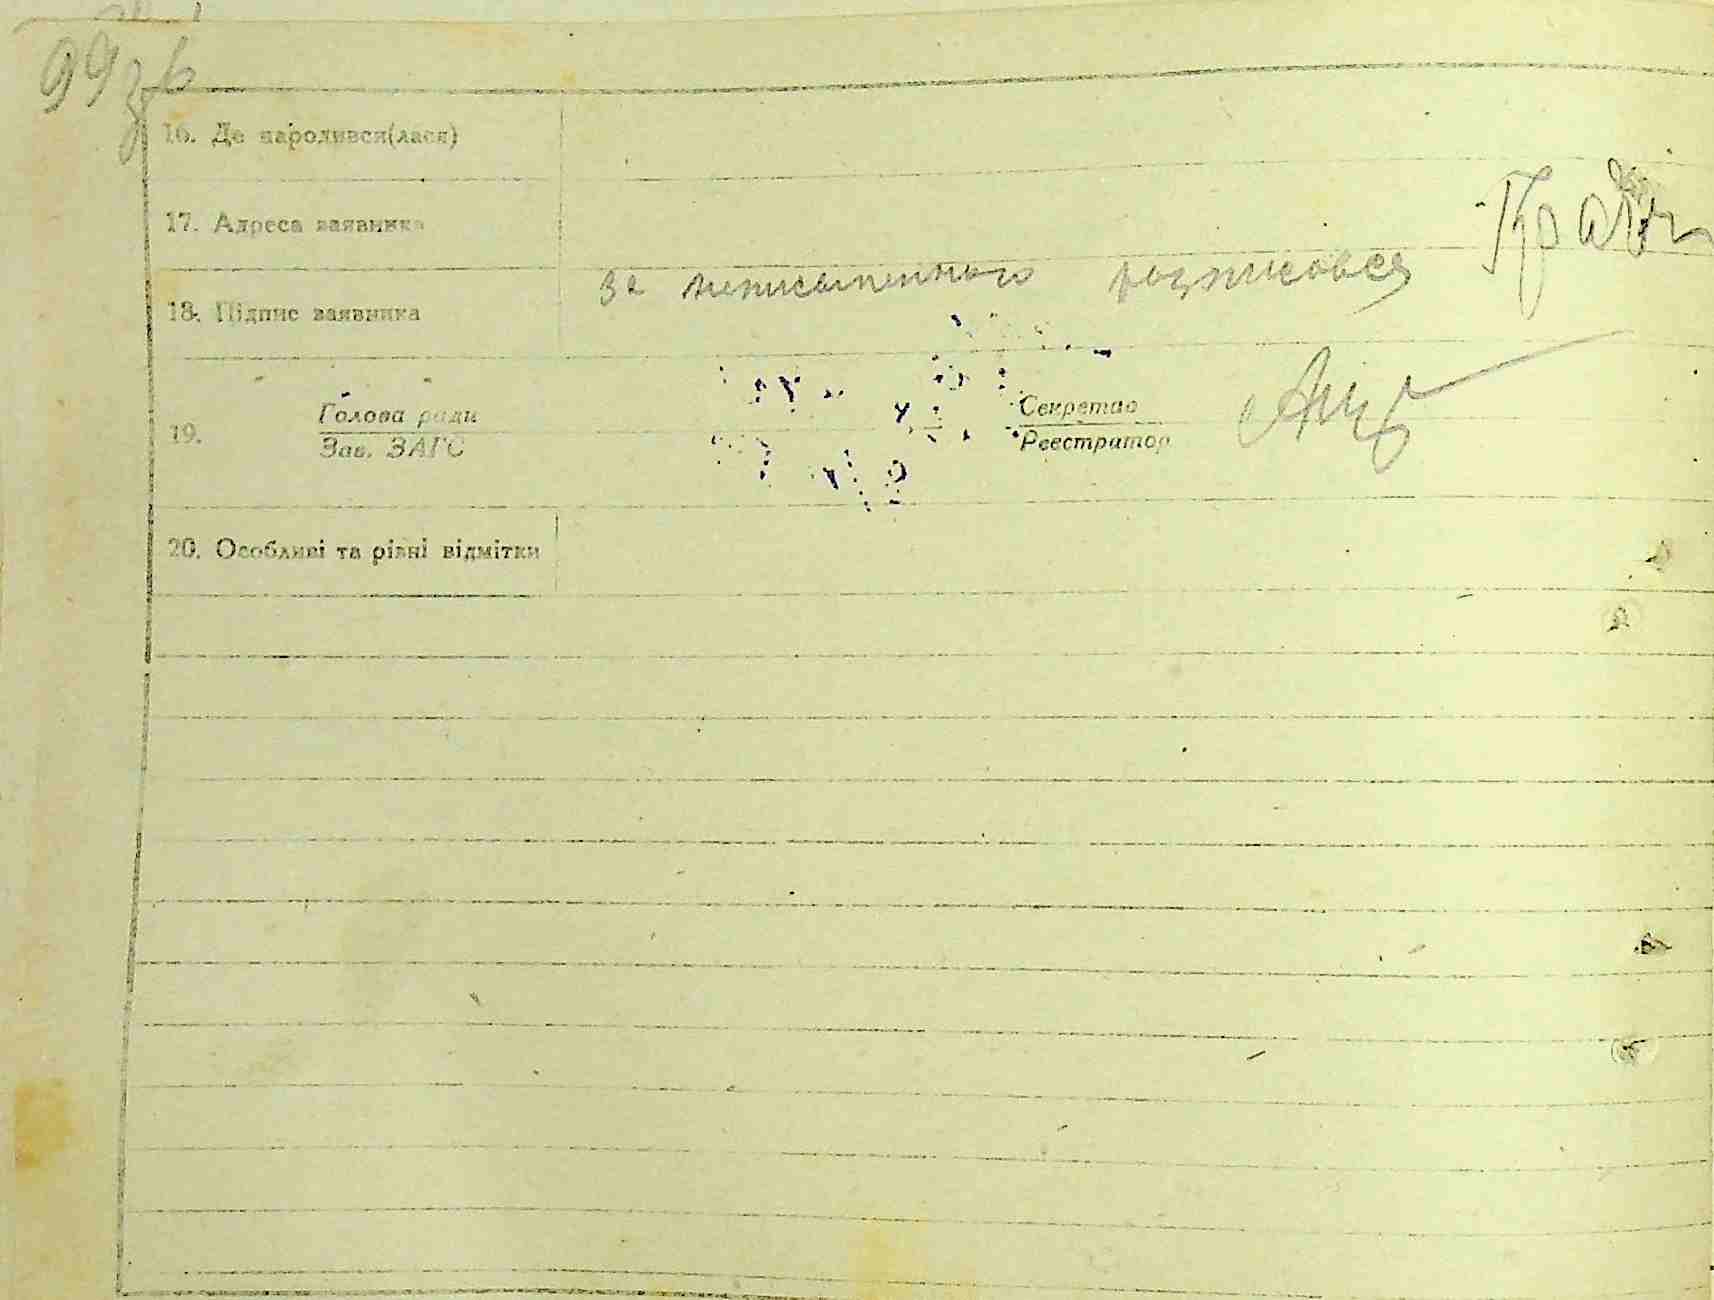 99 зв
16. Де народився(лася)
17. Адреса заявника
18. Підпис заявника за неписьменного розписовся
19. Голова ради Секретар
Зав. ЗАГС Реєстратор
20. Особливі та різні відмітки